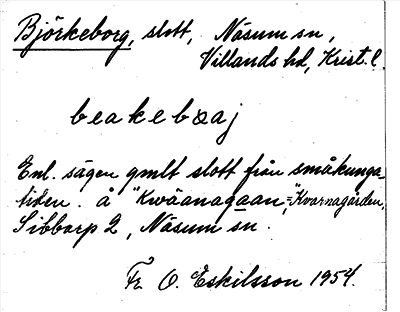 Björkeborg, slott, Näsum sn,
Villands hd, Krist. l.
beakebɑaj
Enl. sägen gmlt slott från småkunga-
tiden. å "Kwäanagaan," = "Kvarnagården,
Sibbarp 2, Näsum sn.
Fr. O. Eskilsson 1954.